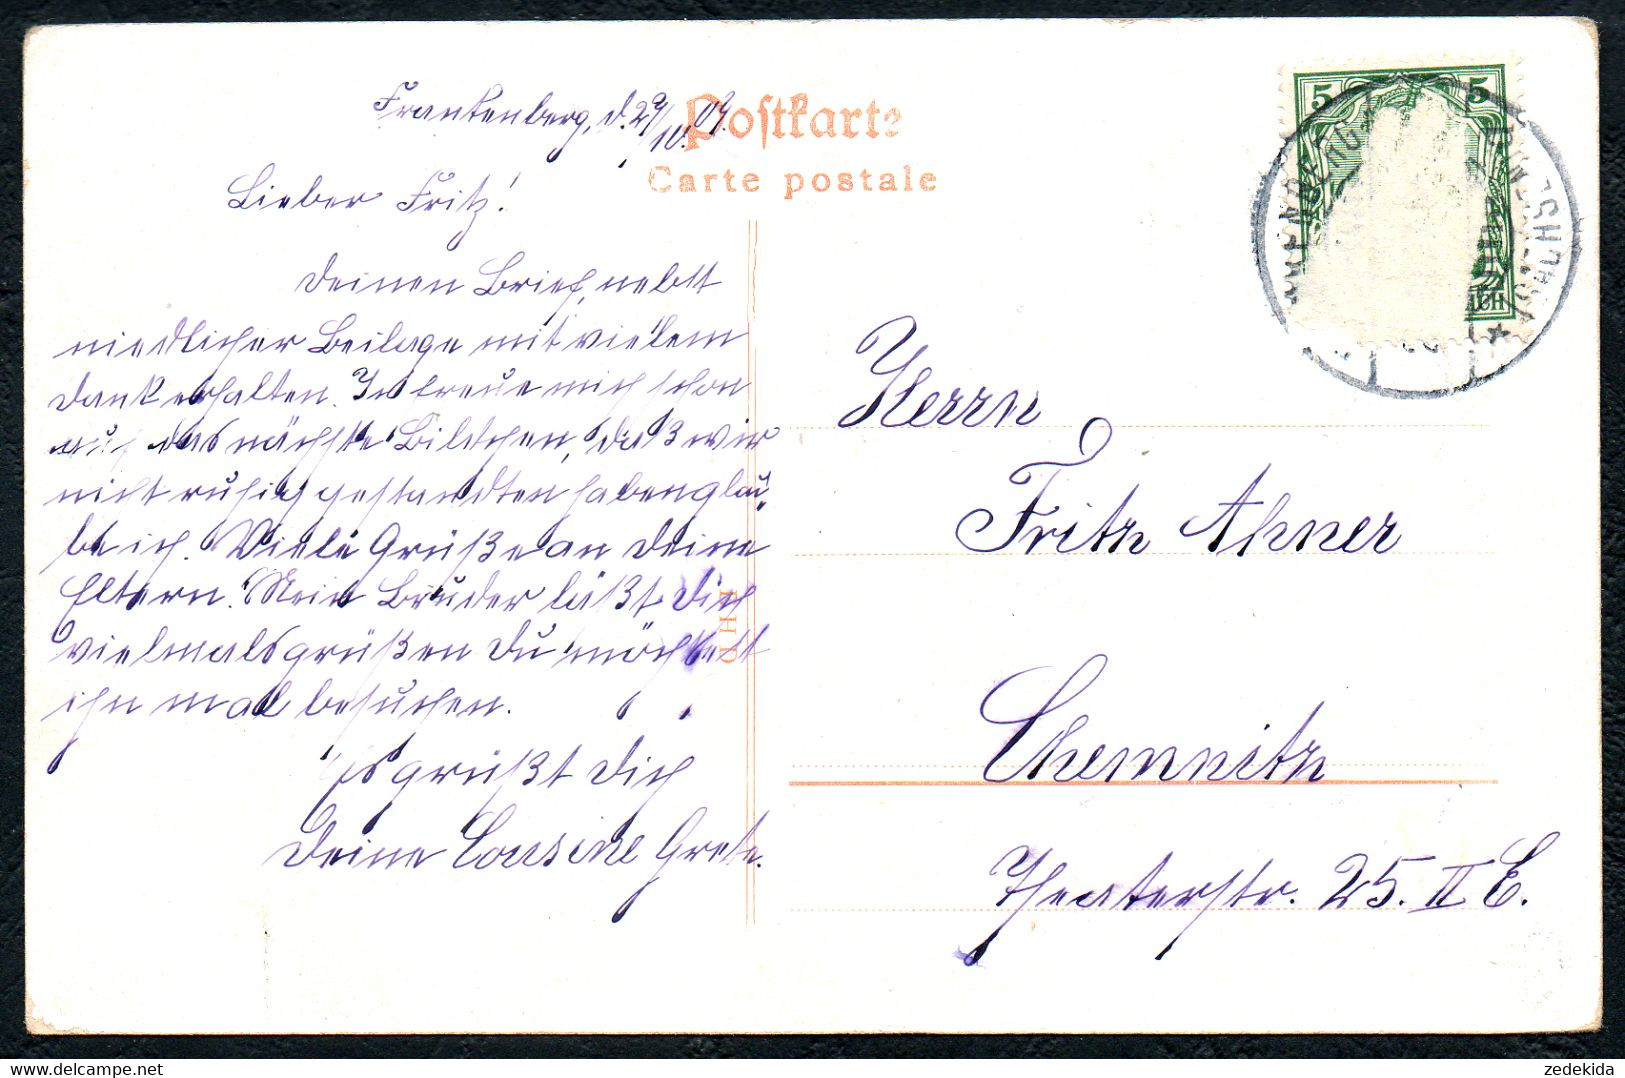 Postkarte
Carte postale
Frankenberg, d. 29/IV. 09.
Lieber Fritz!
Deinen Brief, nebst
niedlicher Beilage mit vielem
Dank erhalten. Ich freue mich schon
auf das nächste Bildchen, daß wir
nicht ruhig gestandten haben glau-
be ich. Viele Grüße an Deine
Eltern. Mein Bruder läßt Dich
vielmals grüßen Du möchtest
ihn mal besuchen.
Es grüßt Dich
Deine Cousine Grete.
Herrn
Fritz Ahner
Chemnitz
Theaterstr. 25. II E.
5 5
zedekida